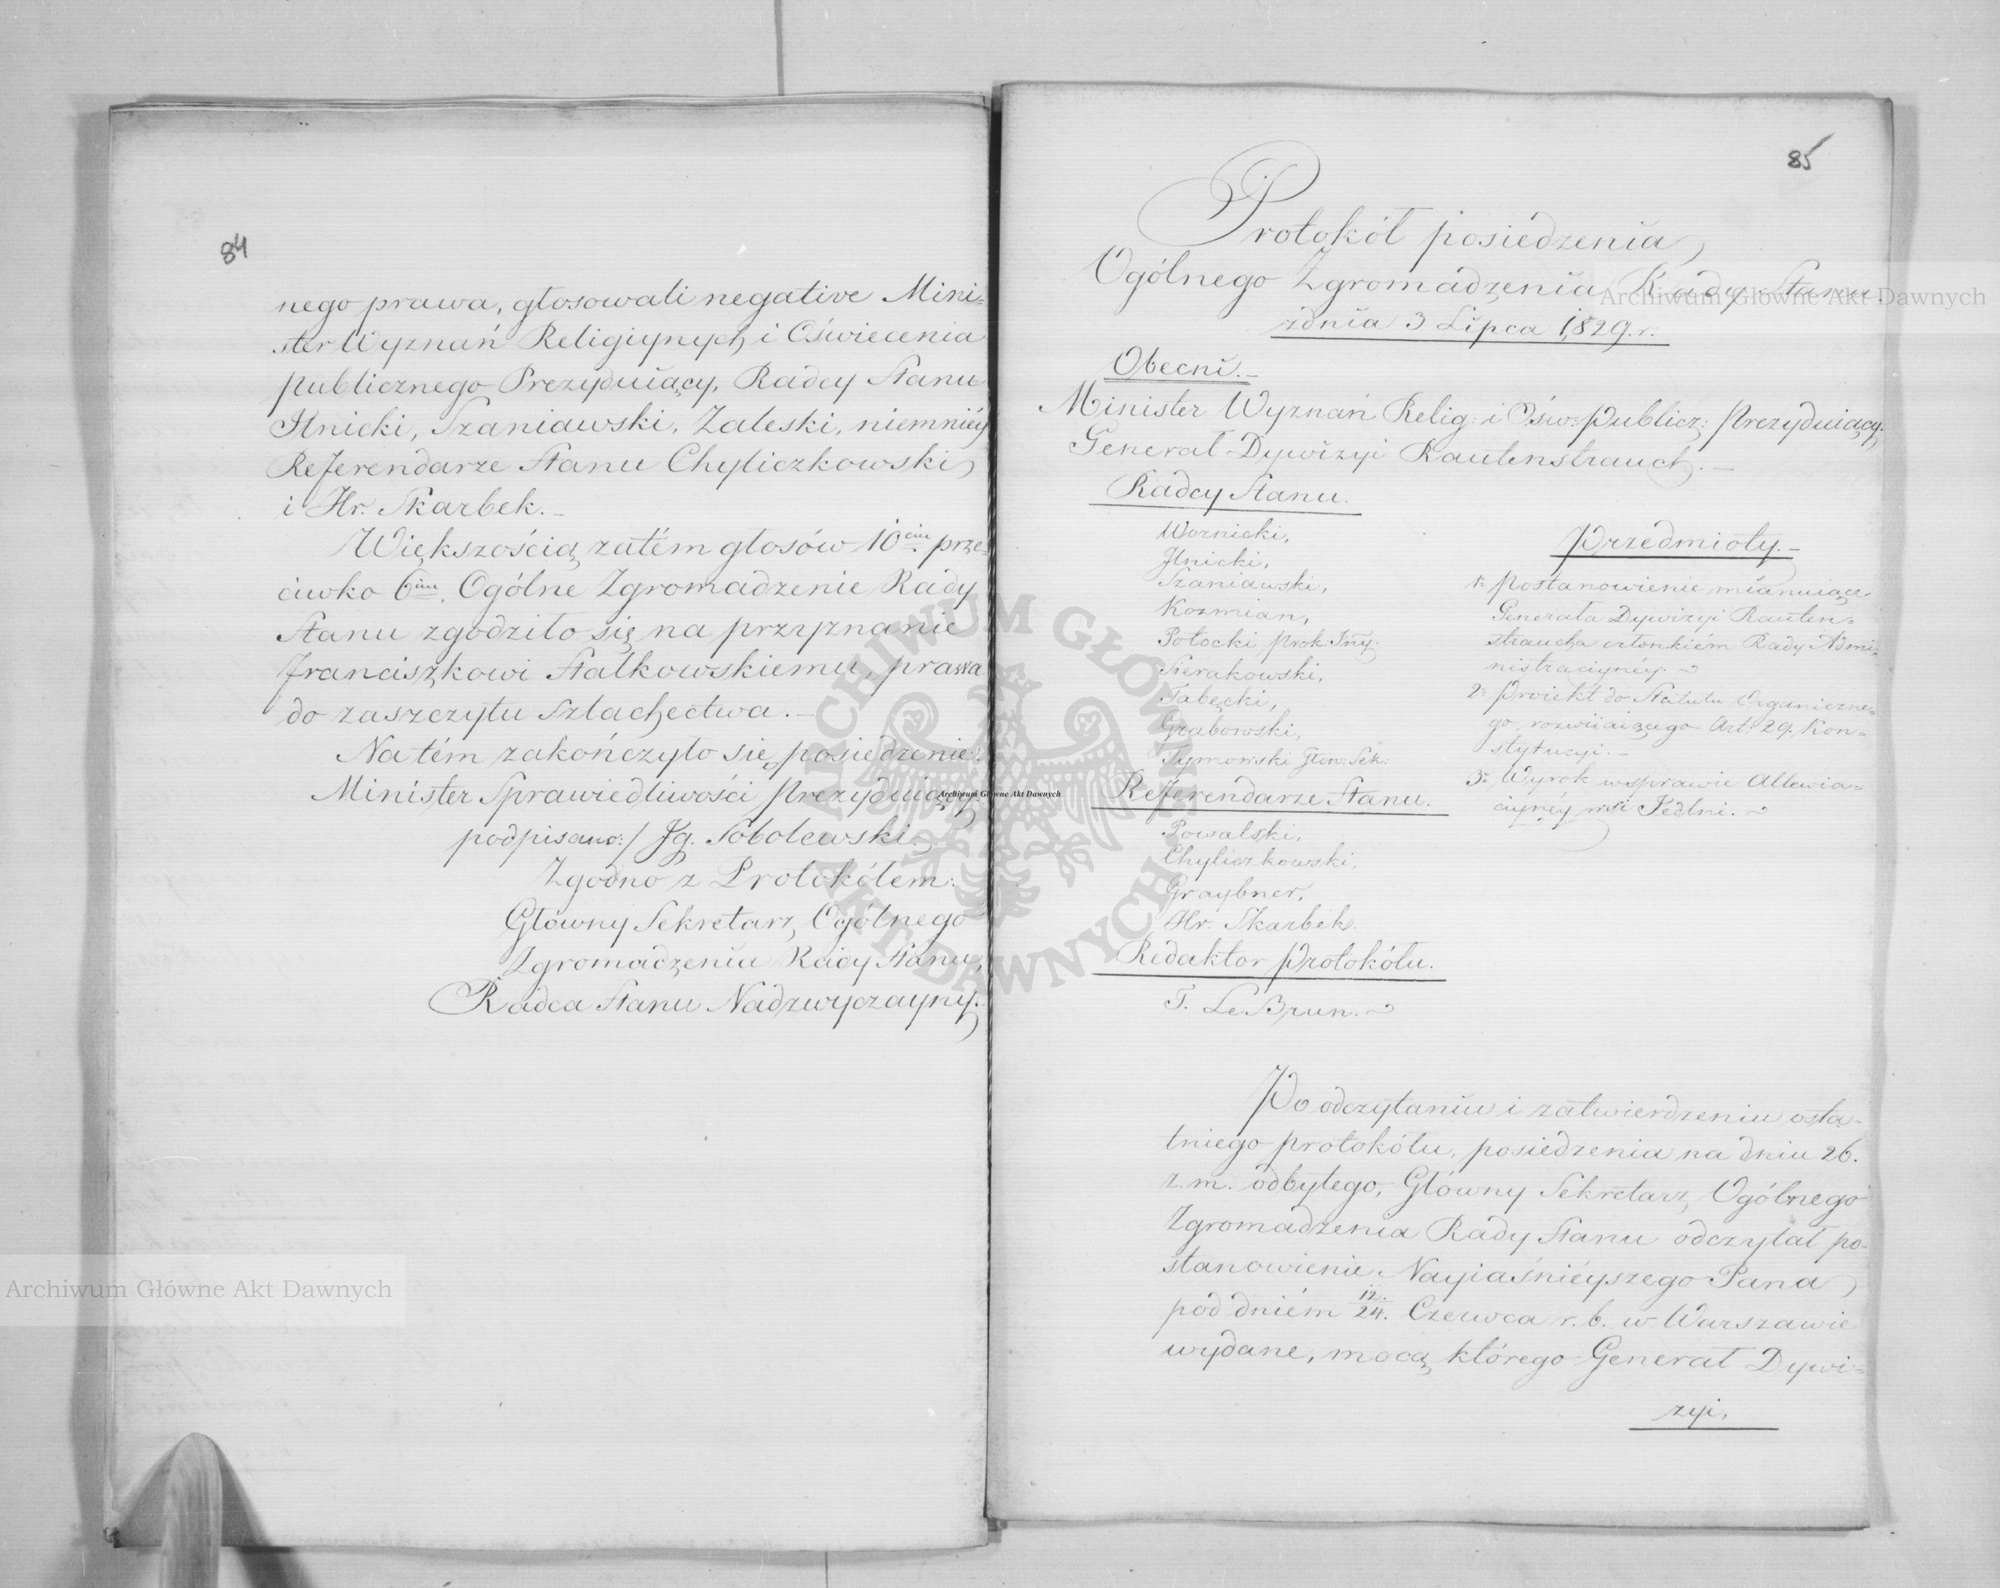 84
nego prawa, głosowali negative Mini=
ster Wyznań Religiynych i Oświecenia
publicznego Prezyduiący, Radcy Stanu
Ilnicki, Szaniawski, Zaleski, niemniéy
Referendarze Stanu Chyliczkowski
i Hr. Skarbek._
Większością zatém głosów 10ciu prze=
ciwko 6iu, Ogólne Zgromadzenie Rady
Stanu zgodziło się na przyznanie
Franciszkowi Stalkowskiemu, prawa
do zaszczytu Szlachectwa._
Na tém zakończyło się posiedzenie.
Minister Sprawiedliwości Prezyduiący.
podpisano:/ Ig. Sobolewski.
Zgodno z Protokółem:
Główny Sekretarz Ogólnego
Zgromadzenia Rady Stanu,
Radca Stanu Nadzwyczayny.
85
Protokół posiedzenia
Ogólnego Zgromadzenia Rady Stanu.
zdnia 3 Lipca 1829.r.
Obecni._
Minister Wyznań Relig: i Ośw: Publicz: Prezyduiący.
Generał Dywizyi Rautenstrauch._
Radcy Stanu.
Woznicki,
Ilnicki,
Szaniawski,
Kozmian,
Potocki Prok: Jny:
Sierakowski,
Tabęcki,
Grabowski,
Tymowski Głow: Sek:
Referendarze Stanu.
Powalski,
Chyliczkowski,
Graybner,
Hr. Skarbek.
Redaktor Protokółu.
T. LeBrun.
Przedmioty._
1o Postanowienie mianuiące
Generała Dywizyi Rauten=
straucha członkiém Rady Admi=
nistracyinéy.
2o Proiekt do Statutu Organiczne=
go, rozwiiaiącego Art: 29. Kon=
stytucyi._
3o Wyrok w sprawie Allewia=
cyinéy wsi Jedlni.
Po odczytaniu i zatwierdzeniu osta=
tniego protokółu, posiedzenia na dniu 26.
z.m. odbytego, Główny Sekretarz Ogólnego
Zgromadzenia Rady Stanu odczytał po=
stanowienie Nayiaśniéyszego Pana
pod dniém 12./24. Czerwca r.b. w Warszawie
wydane, mocą którego Generał Dywi=
zyi,
Archiwum Główne Akt Dawnych
Archiwum Główne Akt Dawnych
Archiwum Główne Akt Dawnych
ARCHIWUM GŁÓWNE AKT DAWNYCH